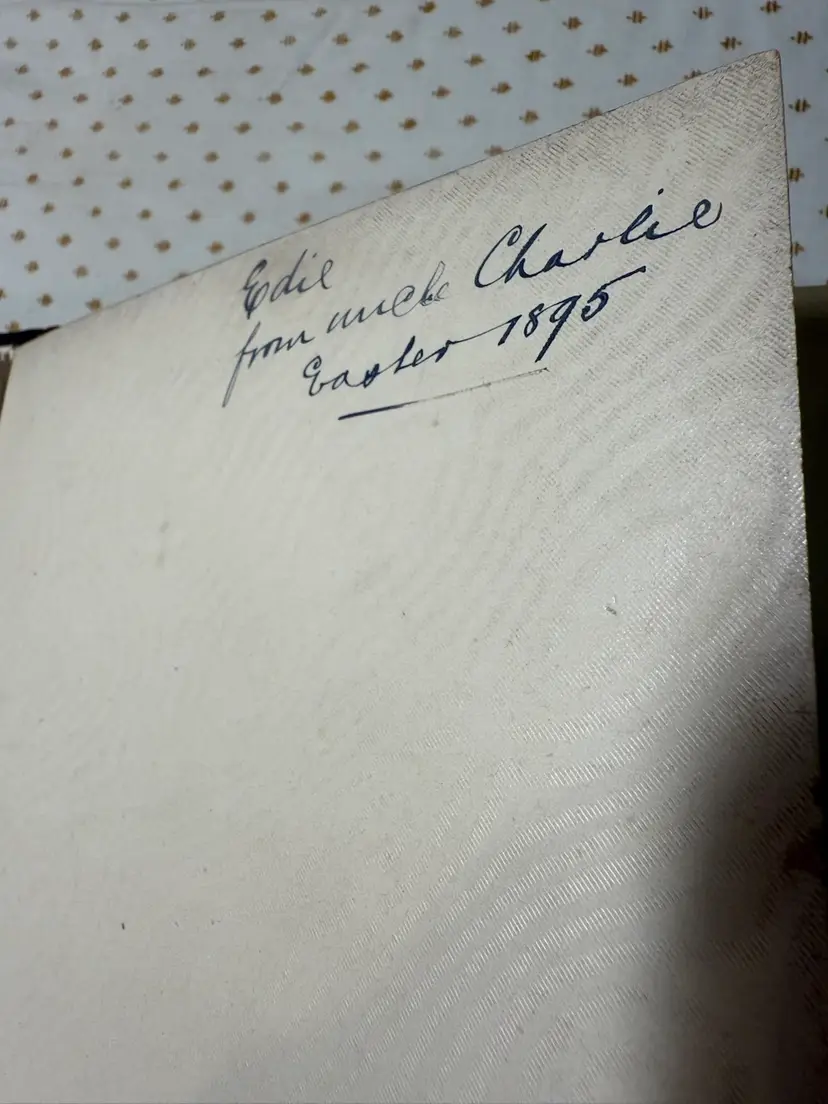 Edie
from uncle Charlie
Easter 1895